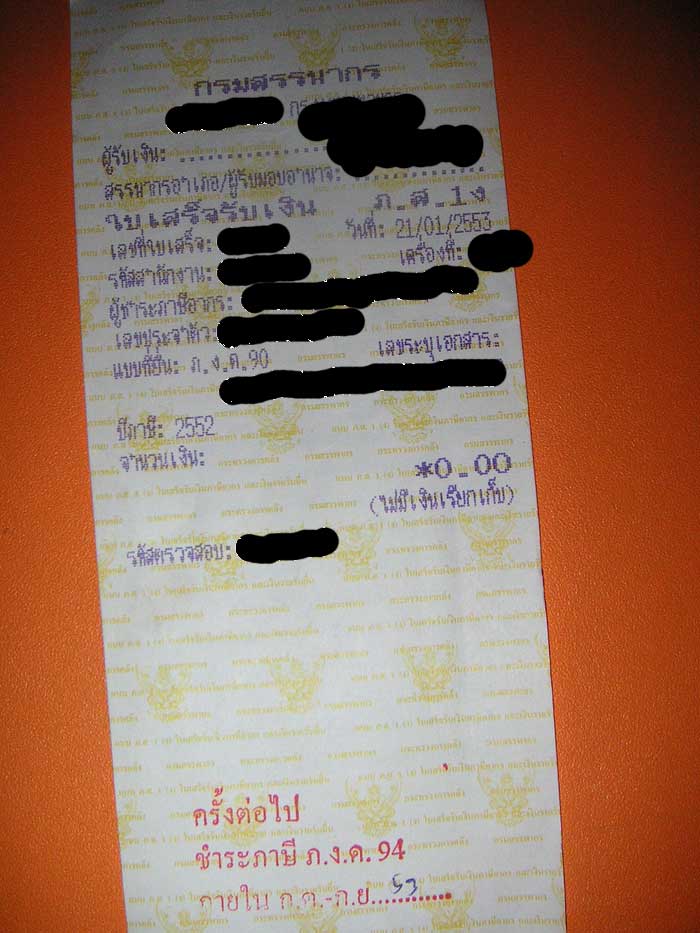 กรมสรรพากร
ผู้รับเงิน: ..............................
สรรพากรอำเภอ/ผู้รับมอบอำนาจ: ..................
ใบเสร็จรับเงิน ภ.ส.1ง
เลขที่ใบเสร็จ: วันที่: 21/01/2553
รหัสสำนักงาน: เครื่องที่:
ผู้ชำระภาษีอากร:
เลขประจำตัว:
แบบที่ยื่น: ภ.ง.ด.90 เลขระบุเอกสาร:
ปีภาษี: 2552
จำนวนเงิน: *0.00
(ไม่มีเงินเรียกเก็บ)
รหัสตรวจสอบ:
ครั้งต่อไป
ชำระภาษี ภ.ง.ด. 94
ภายใน ก.ค.-ก.ย...53............